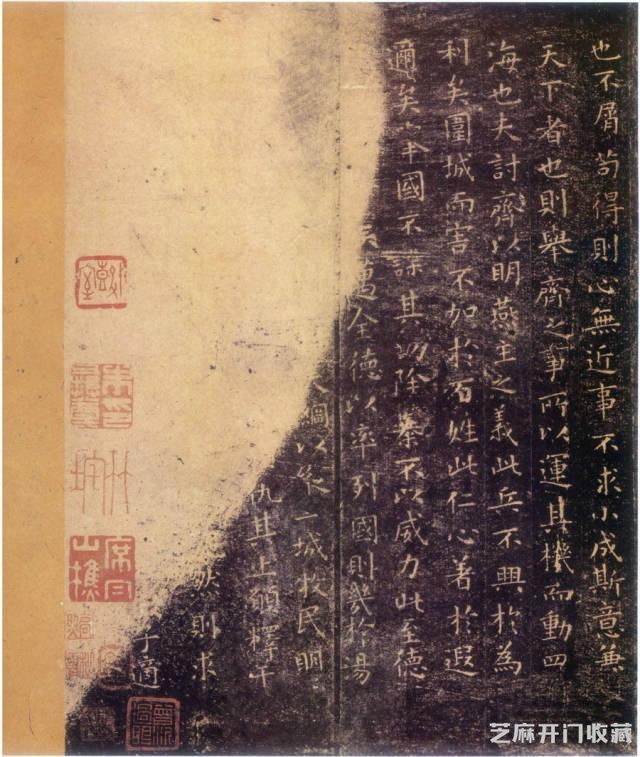 也不屑苟得則心無近事不求小成斯意兼
天下者也則舉齊之事所以運其機而動四
海也夫討齊以明燕主之義此兵不興於為
利矣圍城而害不加於百姓此仁心著於遐
邇矣舉國不謀其功除暴不以威力此至德
矣邁全德以率列國則幾於湯
大綱以縱二城牧民明
仇其上願釋干
然則求
子適
席氏
山樵
芝麻开门收藏